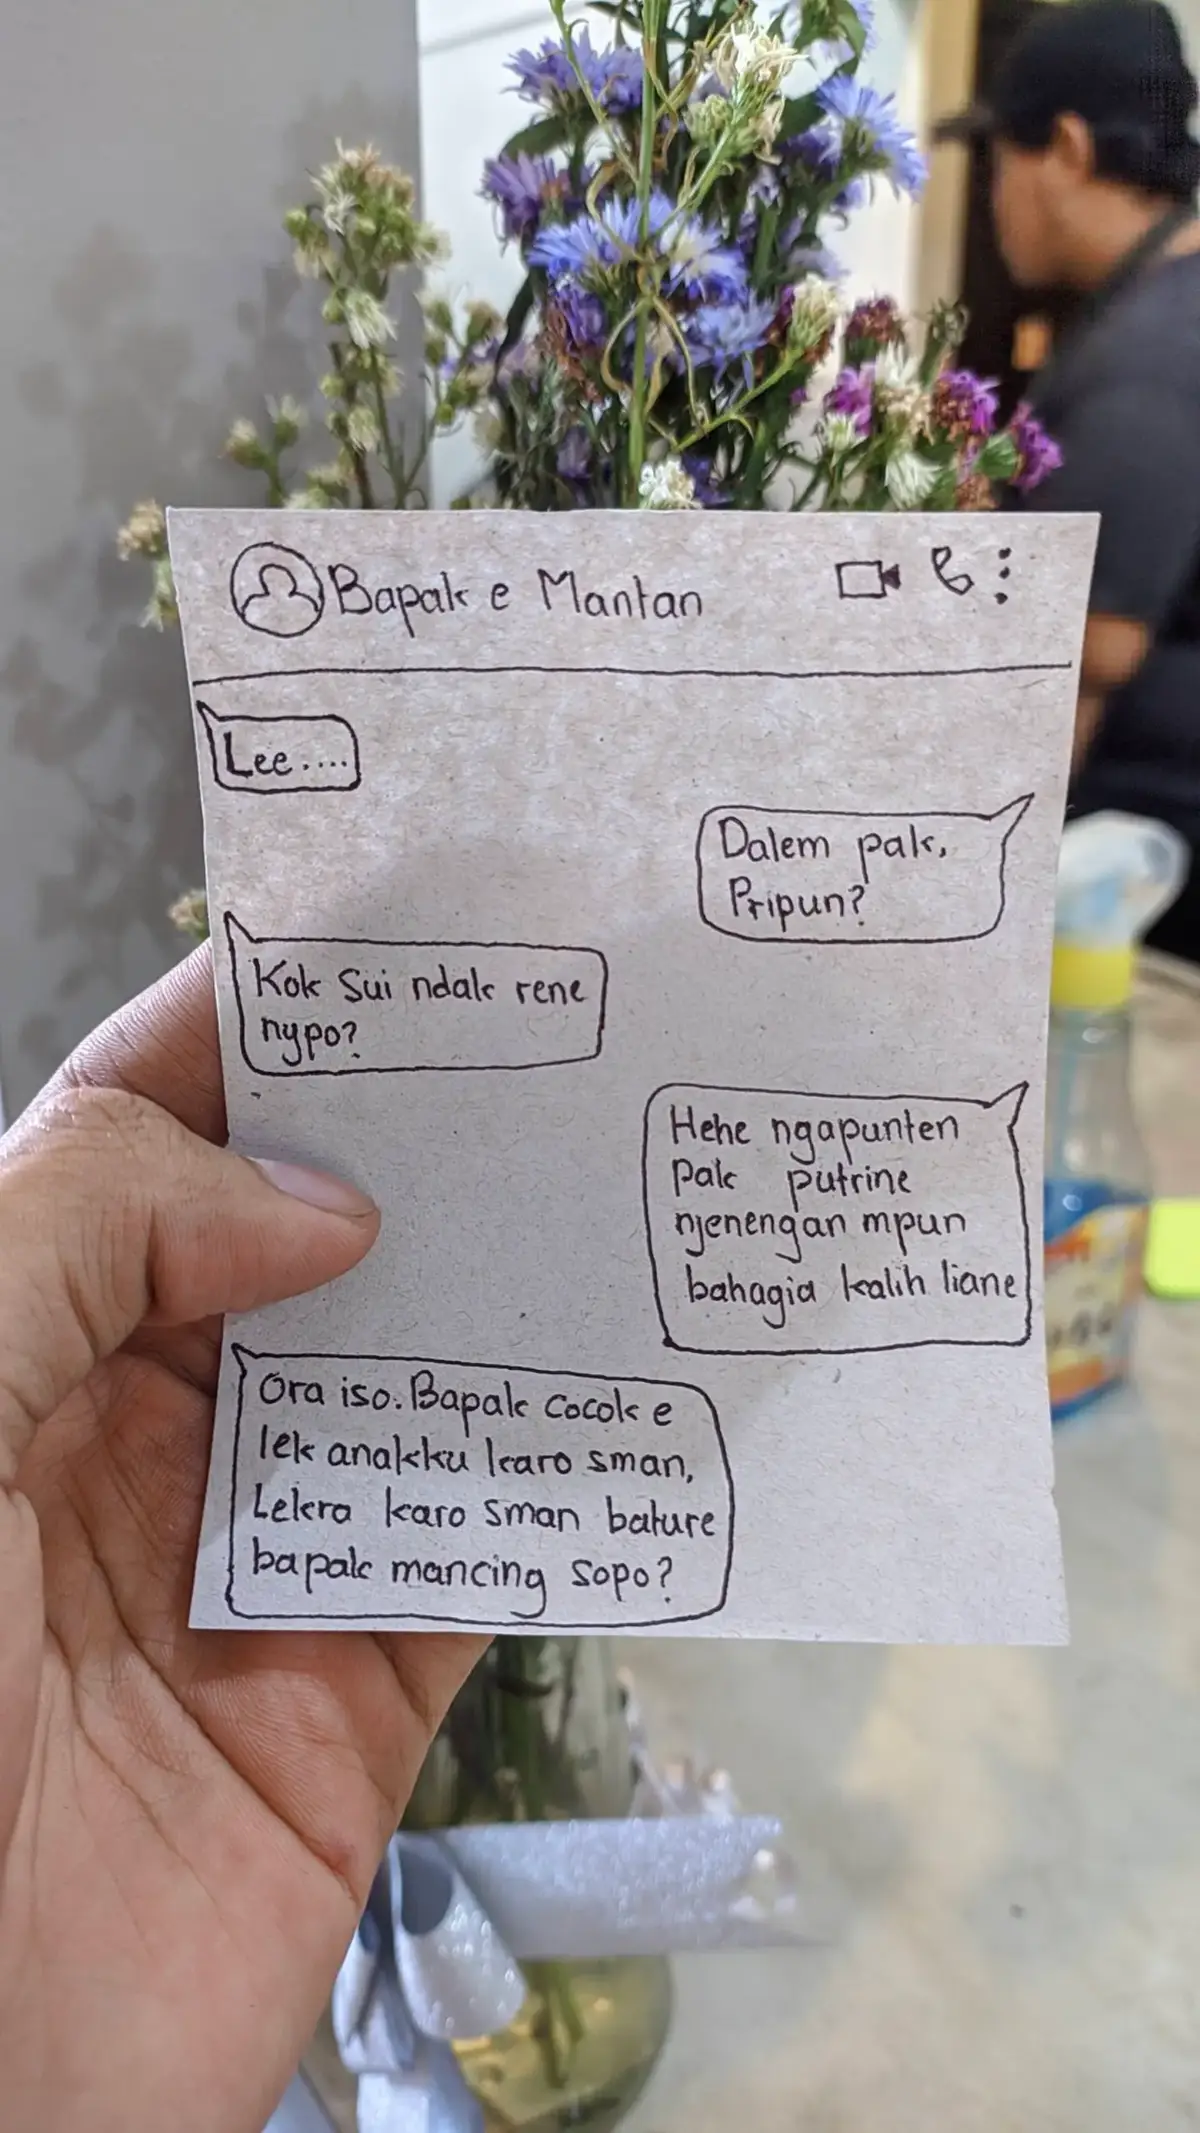 Bapak e Mantan
Lee....
Dalem pak,
Pripun?
Kok Sui ndak rene
nypo?
Hehe ngapunten
pak putrine
njenengan mpun
bahagia kalih liane
Ora iso. Bapak cocok e
lek anakku karo sman,
Lekra karo sman bature
bapak mancing sopo?